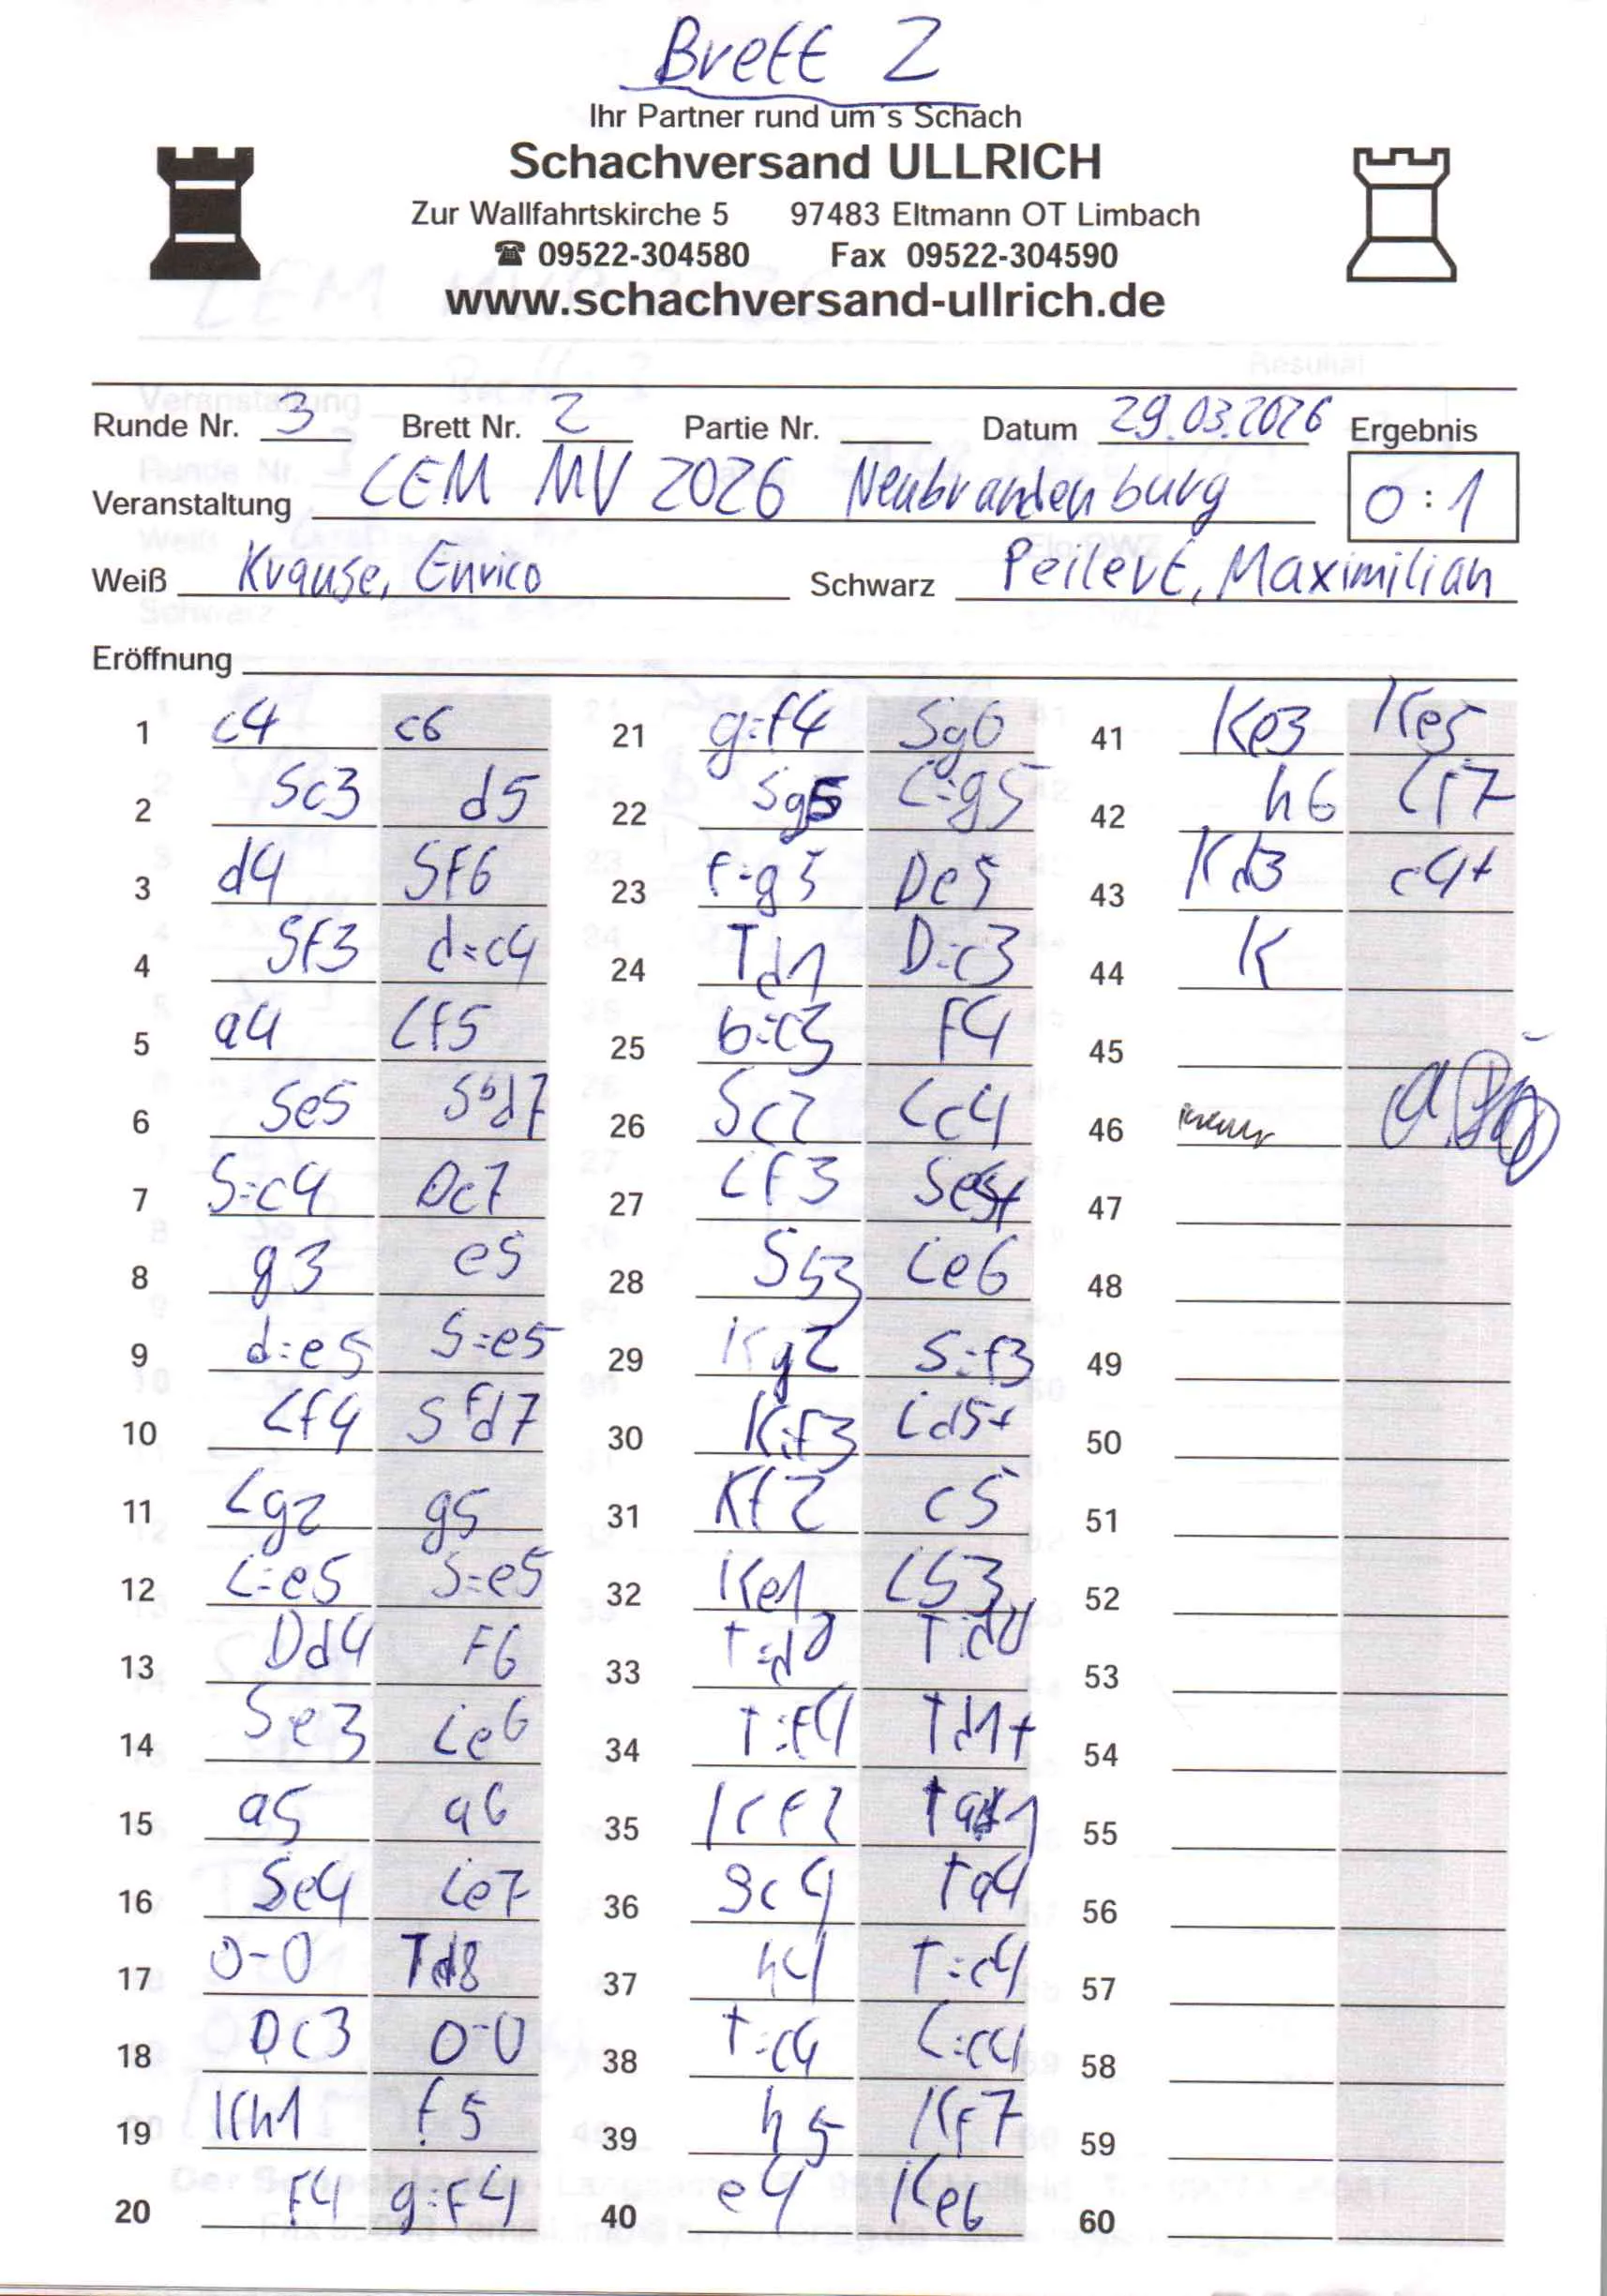 Brett 2
Ihr Partner rund um´s Schach
Schachversand ULLRICH
Zur Wallfahrtskirche 5 97483 Eltmann OT Limbach
☎ 09522-304580 Fax 09522-304590
www.schachversand-ullrich.de
Runde Nr. 3 Brett Nr. 2 Partie Nr. Datum 29.03.2026 Ergebnis
Veranstaltung LEM MV 2026 Neubrandenburg 0:1
Weiß Krause, Enrico Schwarz Peilert, Maximilian
Eröffnung
1 c4 c6
2 Sc3 d5
3 d4 Sf6
4 Sf3 d=c4
5 a4 Lf5
6 Se5 Sbd7
7 S=c4 Dc7
8 g3 e5
9 d=e5 S=e5
10 Lf4 Sfd7
11 Lg2 g5
12 L=e5 S=e5
13 Dd4 f6
14 Se3 Le6
15 a5 a6
16 Se4 Le7
17 0-0 Td8
18 Dc3 0-0
19 Kh1 f5
20 f4 g=f4
21 g=f4 Sg6
22 Sg5 L=g5
23 f=g5 De5
24 Td1 D=c3
25 b=c3 f4
26 Sc2 Lc4
27 Lf3 Se5
28 Sb3 Le6
29 Kg2 S=f3
30 K=f3 Ld5+
31 Kf2 c5
32 Ke1 Lb3
33 T=d8 T=d8
34 T=f4 Td1+
35 Kf2 Ta1
36 Sc4 Ta4
37 h4 T=c4
38 T=c4 L=c4
39 h5 Kf7
40 e4 Ke6
41 Ke3 Ke5
42 h6 Lf7
43 Kd3 c4+
44 K
45
46
47
48
49
50
51
52
53
54
55
56
57
58
59
60